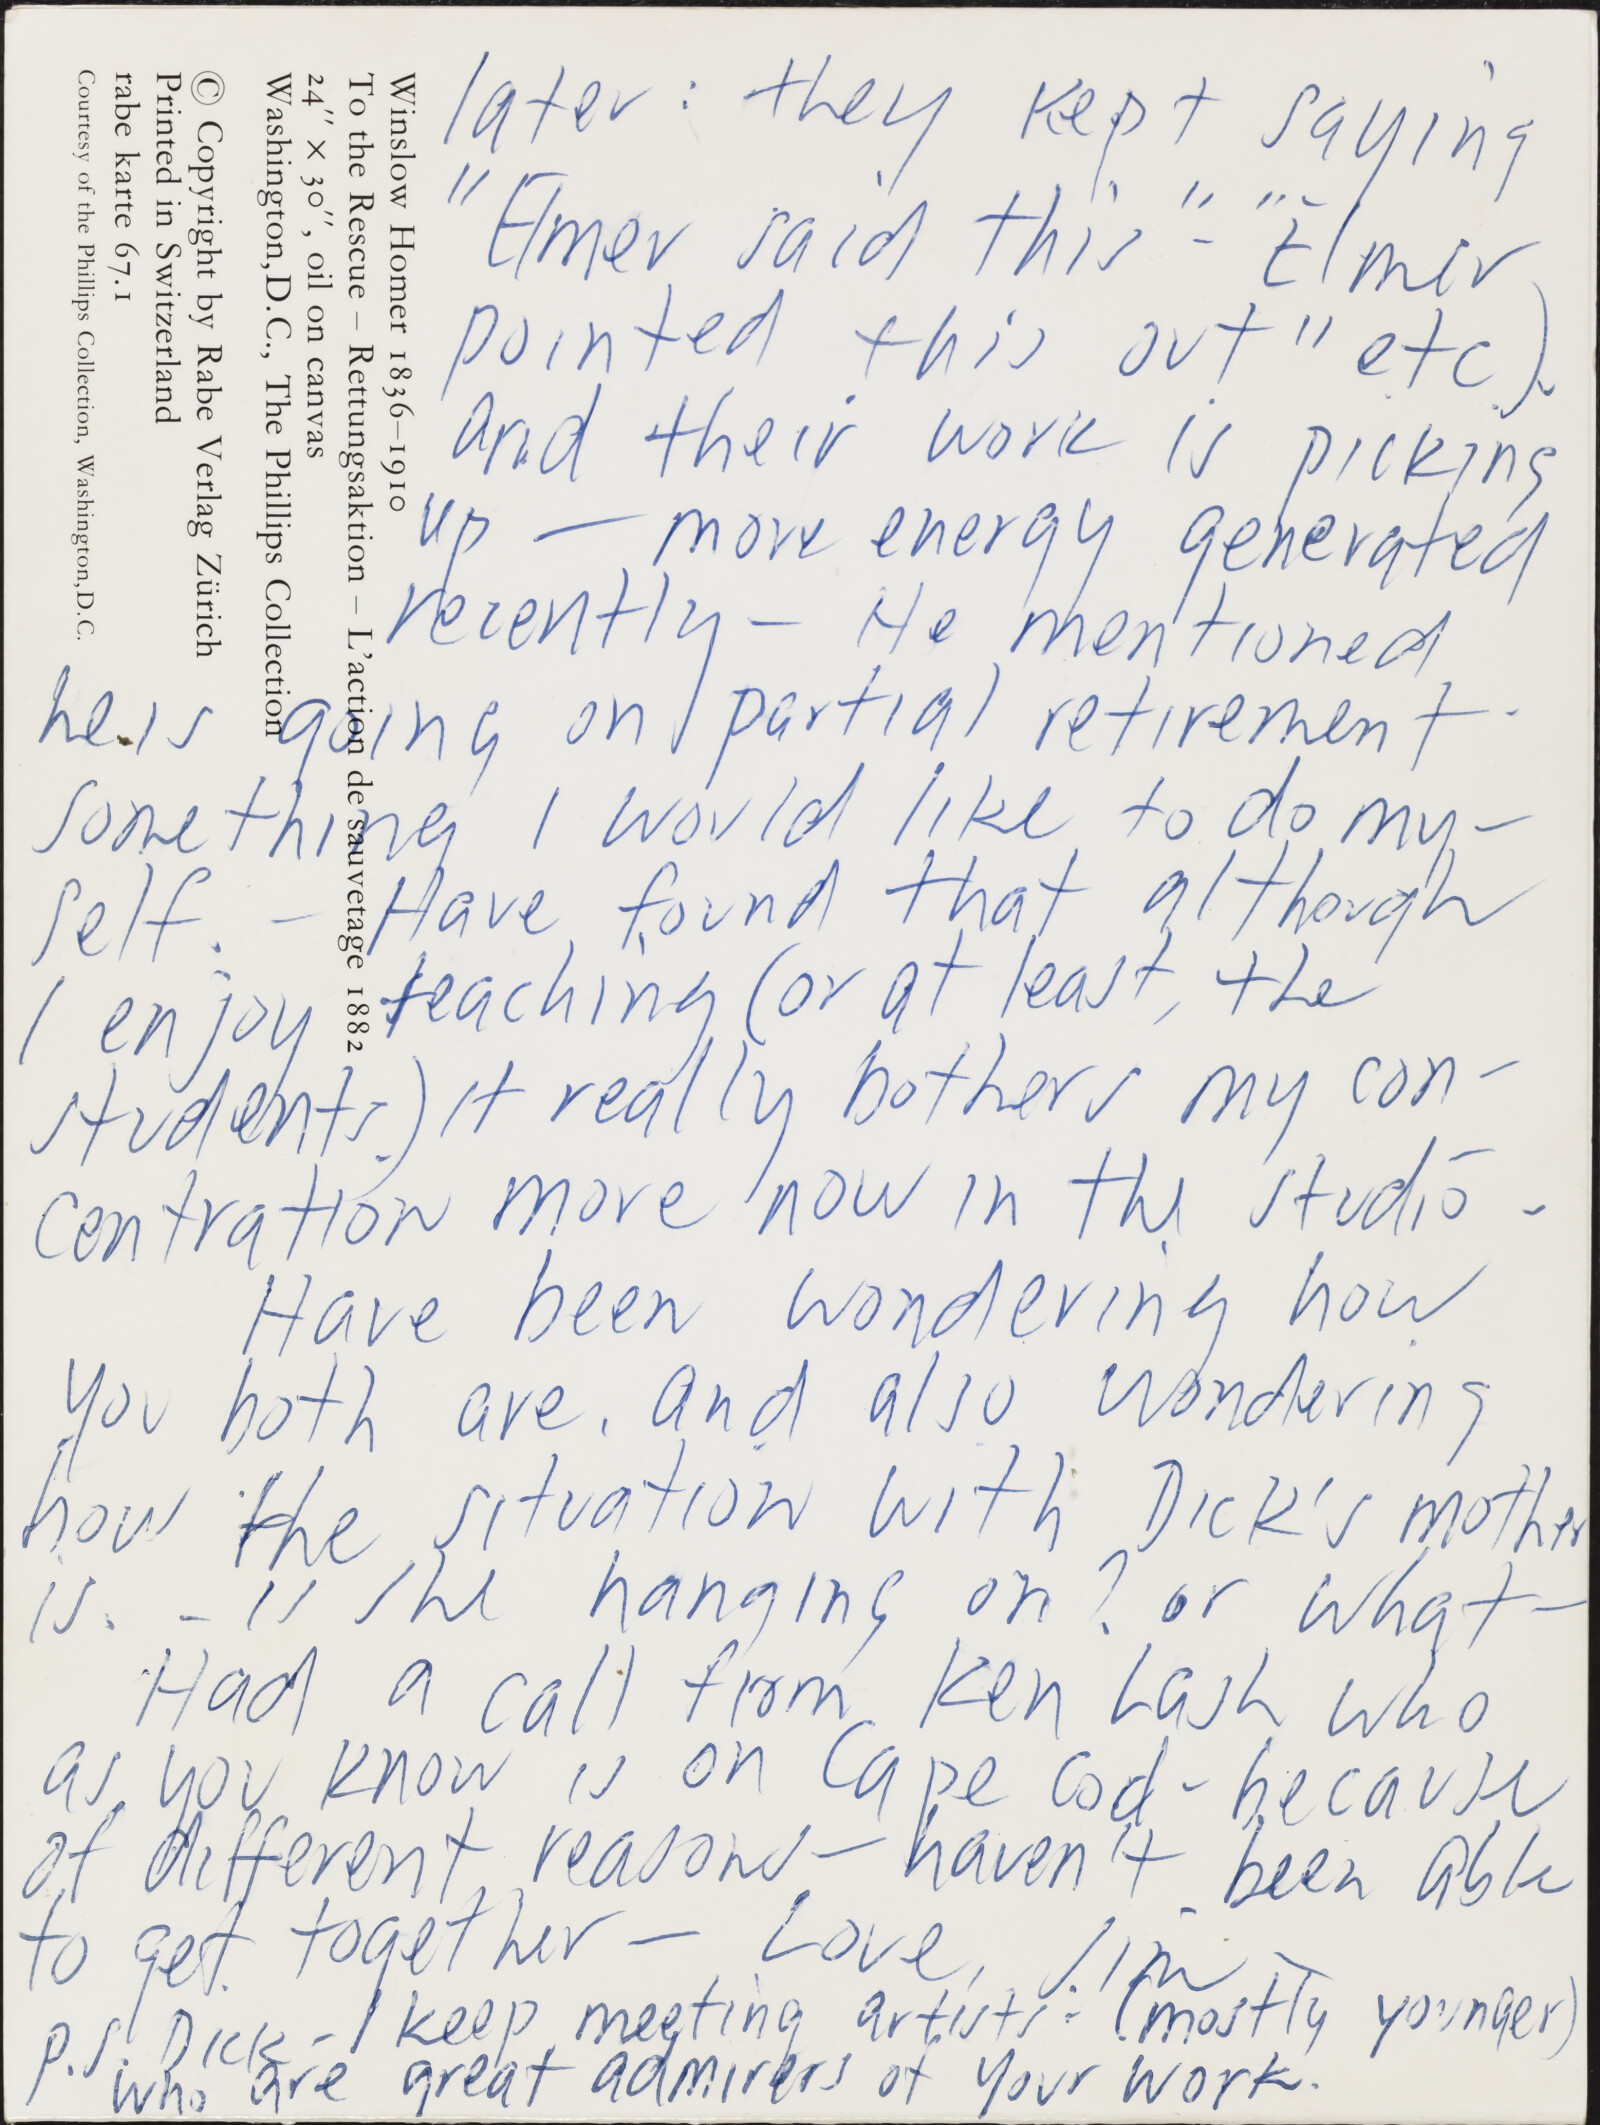 later: they kept saying
"Elmer said this" - "Elmer
pointed this out" etc).
and their work is picking
up — more energy generated
recently — He mentioned
he is going on partial retirement -
something I would like to do my-
self. - Have found that although
I enjoy teaching (or at least, the
students.) it really bothers my con-
centration more now in the studio -
Have been wondering how
you both are. and also wondering
how the situation with Dick's mother
is. - is she hanging on? or what -
Had a call from Ken Lash who
as you know is on Cape Cod - because
of different reasons - haven't been able
to get together — Love, Jim -
p.s. Dick - I keep meeting artists - (mostly younger)
who are great admirers of your work.
Winslow Homer 1836–1910
To the Rescue – Rettungsaktion – L'action de sauvetage 1882
24" × 30", oil on canvas
Washington, D.C., The Phillips Collection
© Copyright by Rabe Verlag Zürich
Printed in Switzerland
rabe karte 67.1
Courtesy of the Phillips Collection, Washington, D.C.